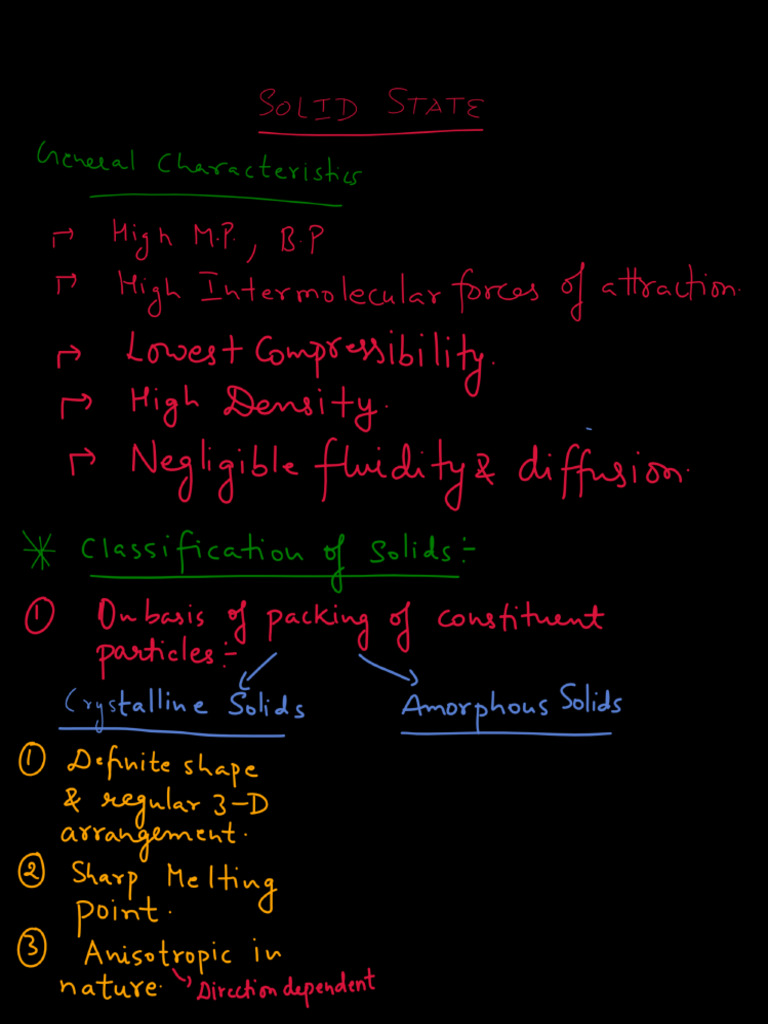 SOLID STATE
General Characteristics
High M.P., B.P
High Intermolecular forces of attraction.
Lowest Compressibility.
High Density.
Negligible fluidity & diffusion.
* Classification of Solids:-
① On basis of packing of constituent
particles:-
Crystalline Solids
Amorphous Solids
① Definite shape
& regular 3-D
arrangement.
② Sharp Melting
point.
③ Anisotropic in
nature.
Direction dependent